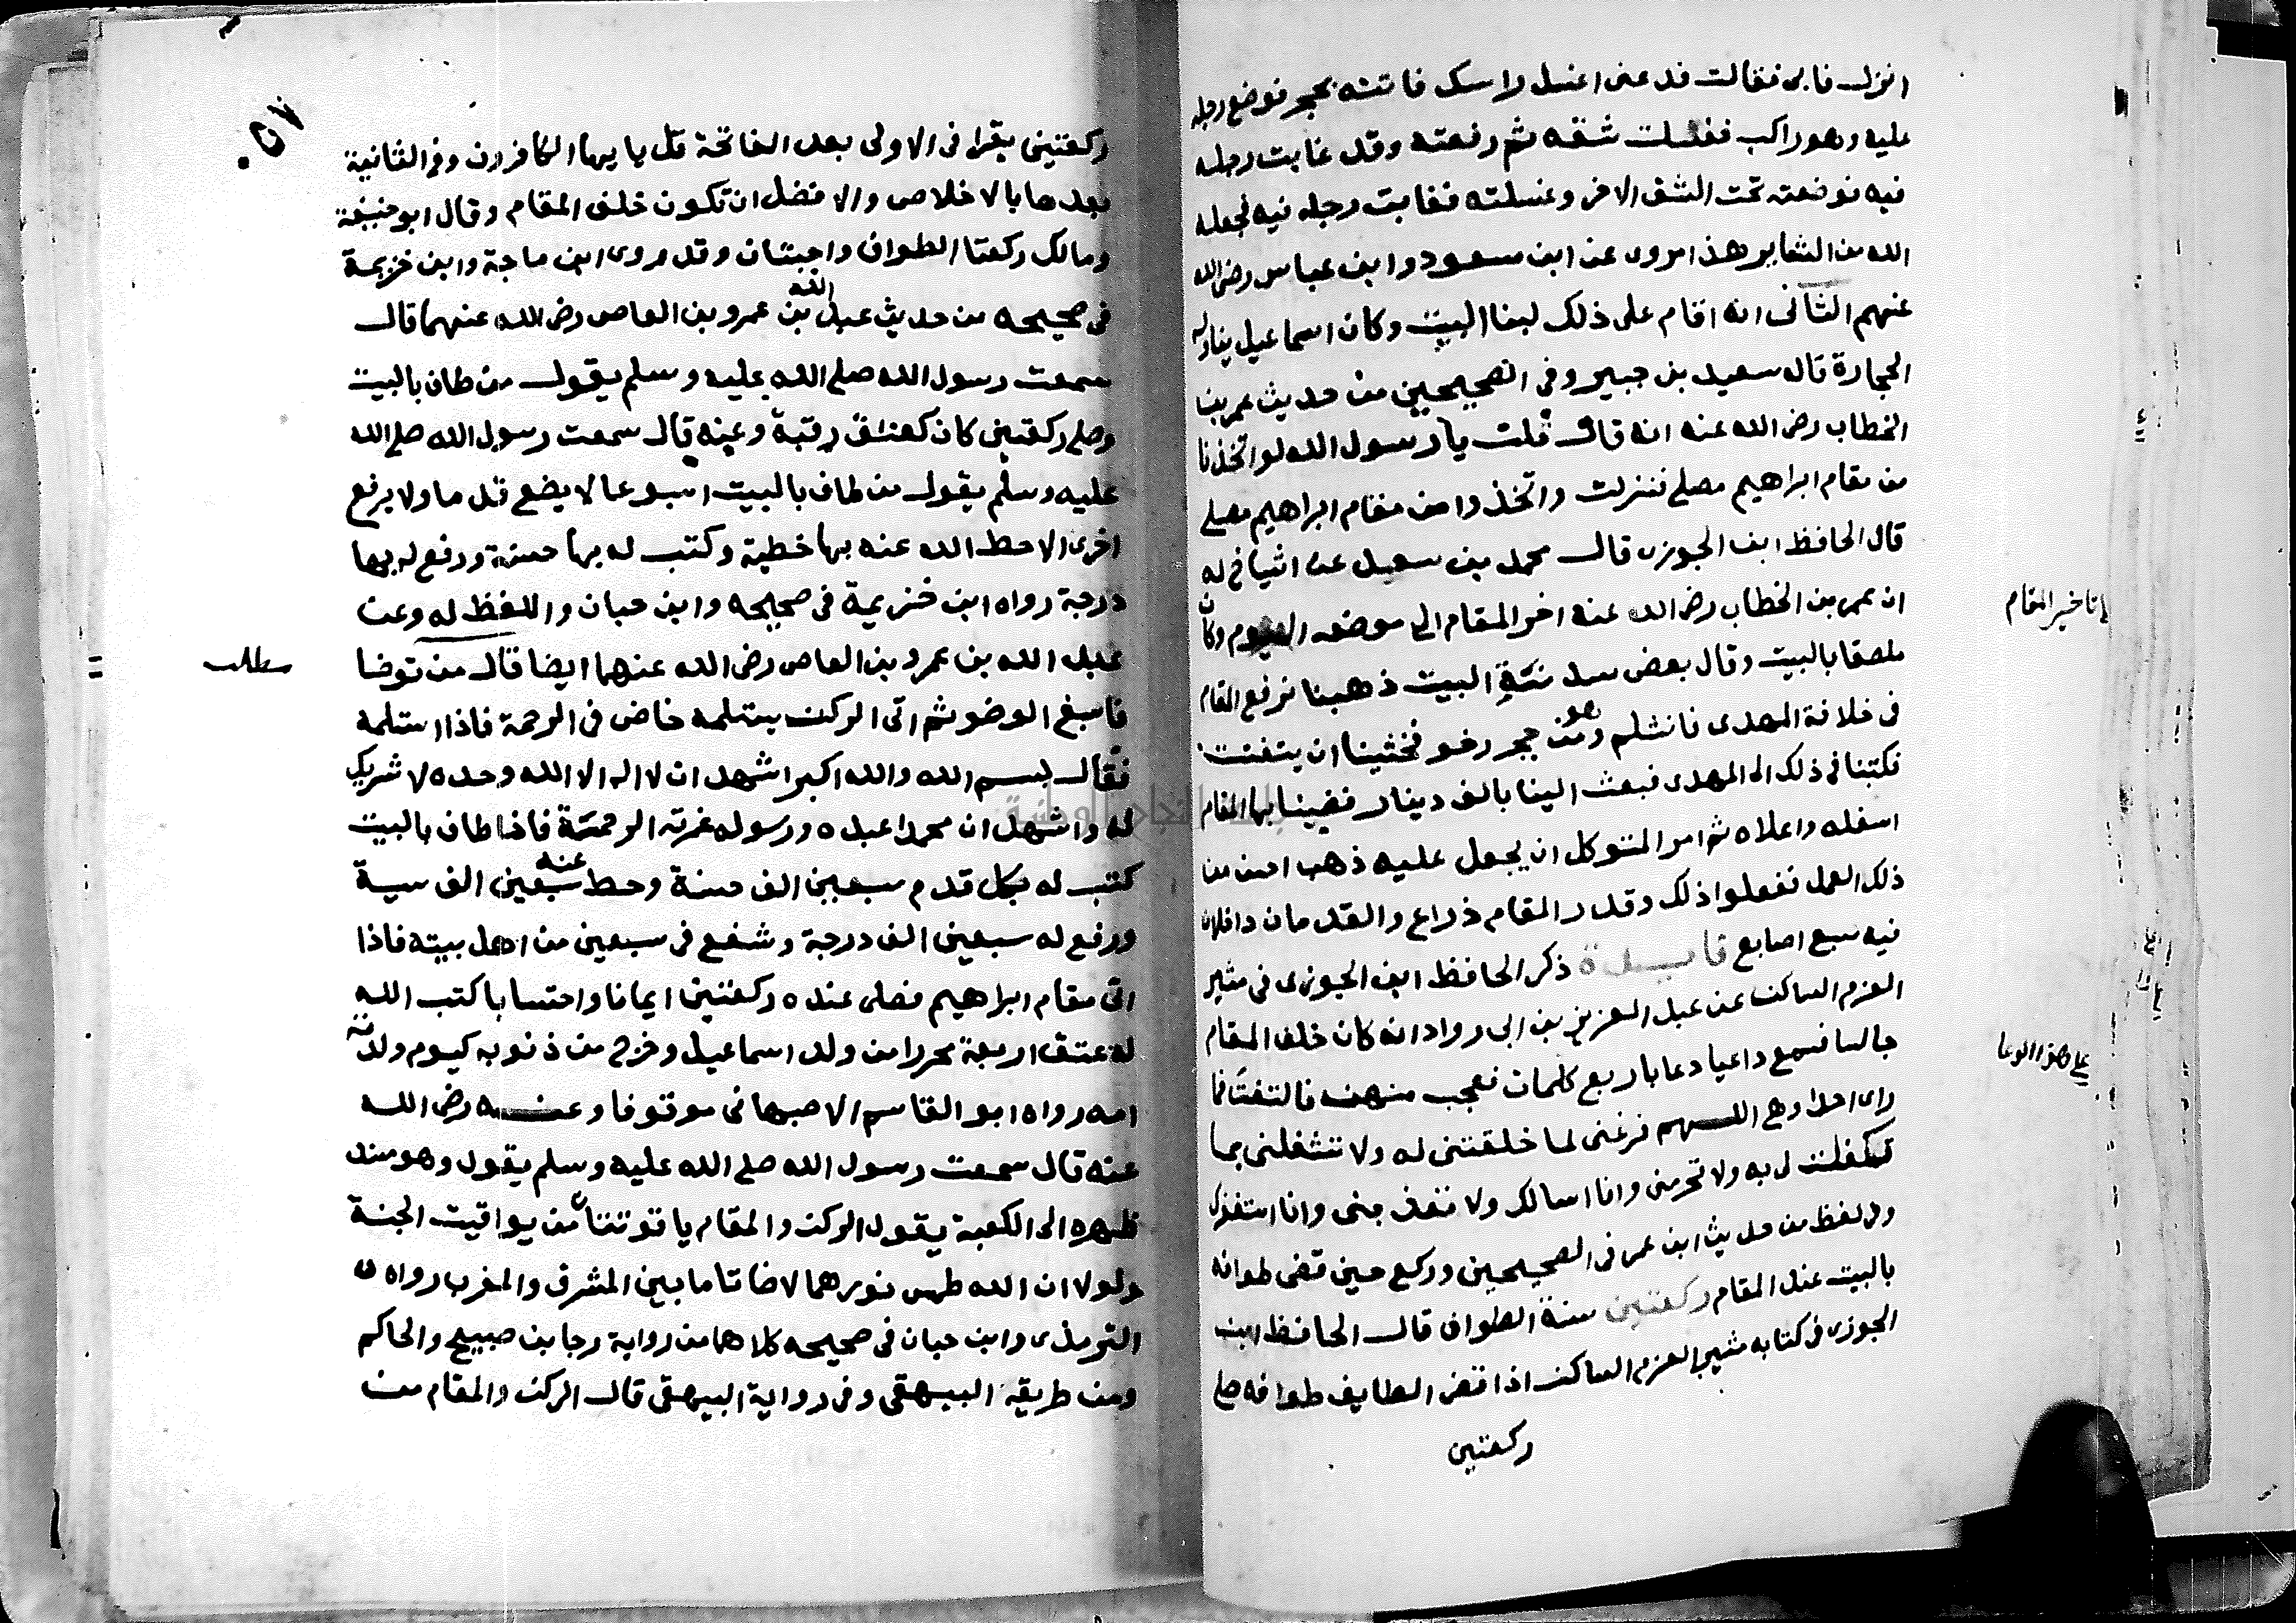 انزل فابى فقالت فدعنى اغسل راسك فاتته بحجر فوضع رجله
عليه وهو راكب فغسلت شقه ثم رفعته وقد غابت رجله
فيه فوضعته تحت الشق الاخر وغسلته فغابت رجله فيه فجعله
الله من الشعاير هذا مروى عن ابن مسعود وابن عباس رضى الله
عنهم الثانى انه اقام على ذلك لبنا البيت وكان اسماعيل يناوله
الحجارة قاله سعيد بن جبير وفى الصحيحين من حديث عمر بن
الخطاب رضى الله عنه انه قال قلت يا رسول الله لو اتخذنا
من مقام ابراهيم مصلى فنزلت واتخذوا من مقام ابراهيم مصلى
قال الحافظ ابن الجوزى قال محمد بن سعيد عن اشياخ له
ان عمر بن الخطاب رضى الله عنه اخر المقام الى موضعه اليوم وكان
لـتاخير المقام
ملصقا بالبيت وقال بعض سدنة البيت ذهبنا نرفع المقام
فى خلافة المهدى فانثلم وهو من حجر رخو فخشينا ان يتفتت
فكتبنا فى ذلك الى المهدى فبعث الينا بالف دينار فضببنا بها المقام
اسفله واعلاه ثم امر المتوكل ان يجعل عليه ذهب احسن من
ذلك العمل ففعلوا ذلك وقدر المقام ذراع والقدمان داخلان
فيه سبع اصابع فايدة ذكر الحافظ ابن الجوزى فى مثير
العزم الساكن عن عبد العزيز بن ابى رواد انه كان خلف المقام
جالسا فسمع داعيا دعا باربع كلمات فعجب منهن فالتفت فما
على هذا الدعا
راى احدا وهى اللهم فرغنى لما خلقتنى له ولا تشغلنى بما
تكفلت لى به ولا تحرمنى وانا اسالك ولا تعذبنى وانا استغفرك
وفى لفظ من حديث ابن عمر فى الصحيحين وركع حين قضى طوافه
بالبيت عند المقام ركعتين سنة الطواف قال الحافظ ابن
الجوزى فى كتابه مثير العزم الساكن اذا قضى الطايف طوافه صلى
ركعتين
٥٧
ركعتين يقرا فى الاولى بعد الفاتحة قل يا يها الكافرون وفى الثانية
بعدها بالاخلاص والافضل ان تكون خلف المقام وقال ابو حنيفة
ومالك ركعتا الطواف واجبتان وقد روى ابن ماجة وابن خزيمة
فى صحيحه من حديث عبد الله بن عمرو بن العاص رضى الله عنهما قال
سمعت رسول الله صلى الله عليه وسلم يقول من طاف بالبيت
وصلى ركعتين كان كعتق رقبة وعنه قال سمعت رسول الله صلى الله
عليه وسلم يقول من طاف بالبيت اسبوعا لا يضع قدما ولا يرفع
اخرى الا حط الله عنه بها خطية وكتب له بها حسنة ورفع له بها
درجة رواه ابن خزيمة فى صحيحه وابن حبان واللفظ له وعن
عبد الله بن عمرو بن العاص رضى الله عنهما ايضا قال من توضا
مطلب
فاسبغ الوضو ثم اتى الركن يستلمه خاض فى الرحمة فاذا استلمه
فقال بسم الله والله اكبر اشهد ان لا اله الا الله وحده لا شريك
له واشهد ان محمدا عبده ورسوله غمرته الرحمة فاذا طاف بالبيت
كتب له بكل قدم سبعين الف حسنة وحط عنه سبعين الف سية
ورفع له سبعين الف درجة وشفع فى سبعين من اهل بيته فاذا
اتى مقام ابراهيم فصلى عنده ركعتين ايمانا واحتسابا كتب الله
له عتق اربعة محررا من ولد اسماعيل وخرج من ذنوبه كيوم ولدته
امه رواه ابو القاسم الاصبهانى موقوفا وعنه رضى الله
عنه قال سمعت رسول الله صلى الله عليه وسلم يقول وهو مسند
ظهره الى الكعبة يقول الركن والمقام ياقوتتان من يواقيت الجنة
ولولا ان الله طمس نورهما لاضاتا ما بين المشرق والمغرب رواه
الترمذى وابن حبان فى صحيحه كلاهما من رواية رجا بن صبيح والحاكم
ومن طريقه البيهقى وفى رواية البيهقى قال الركن والمقام من